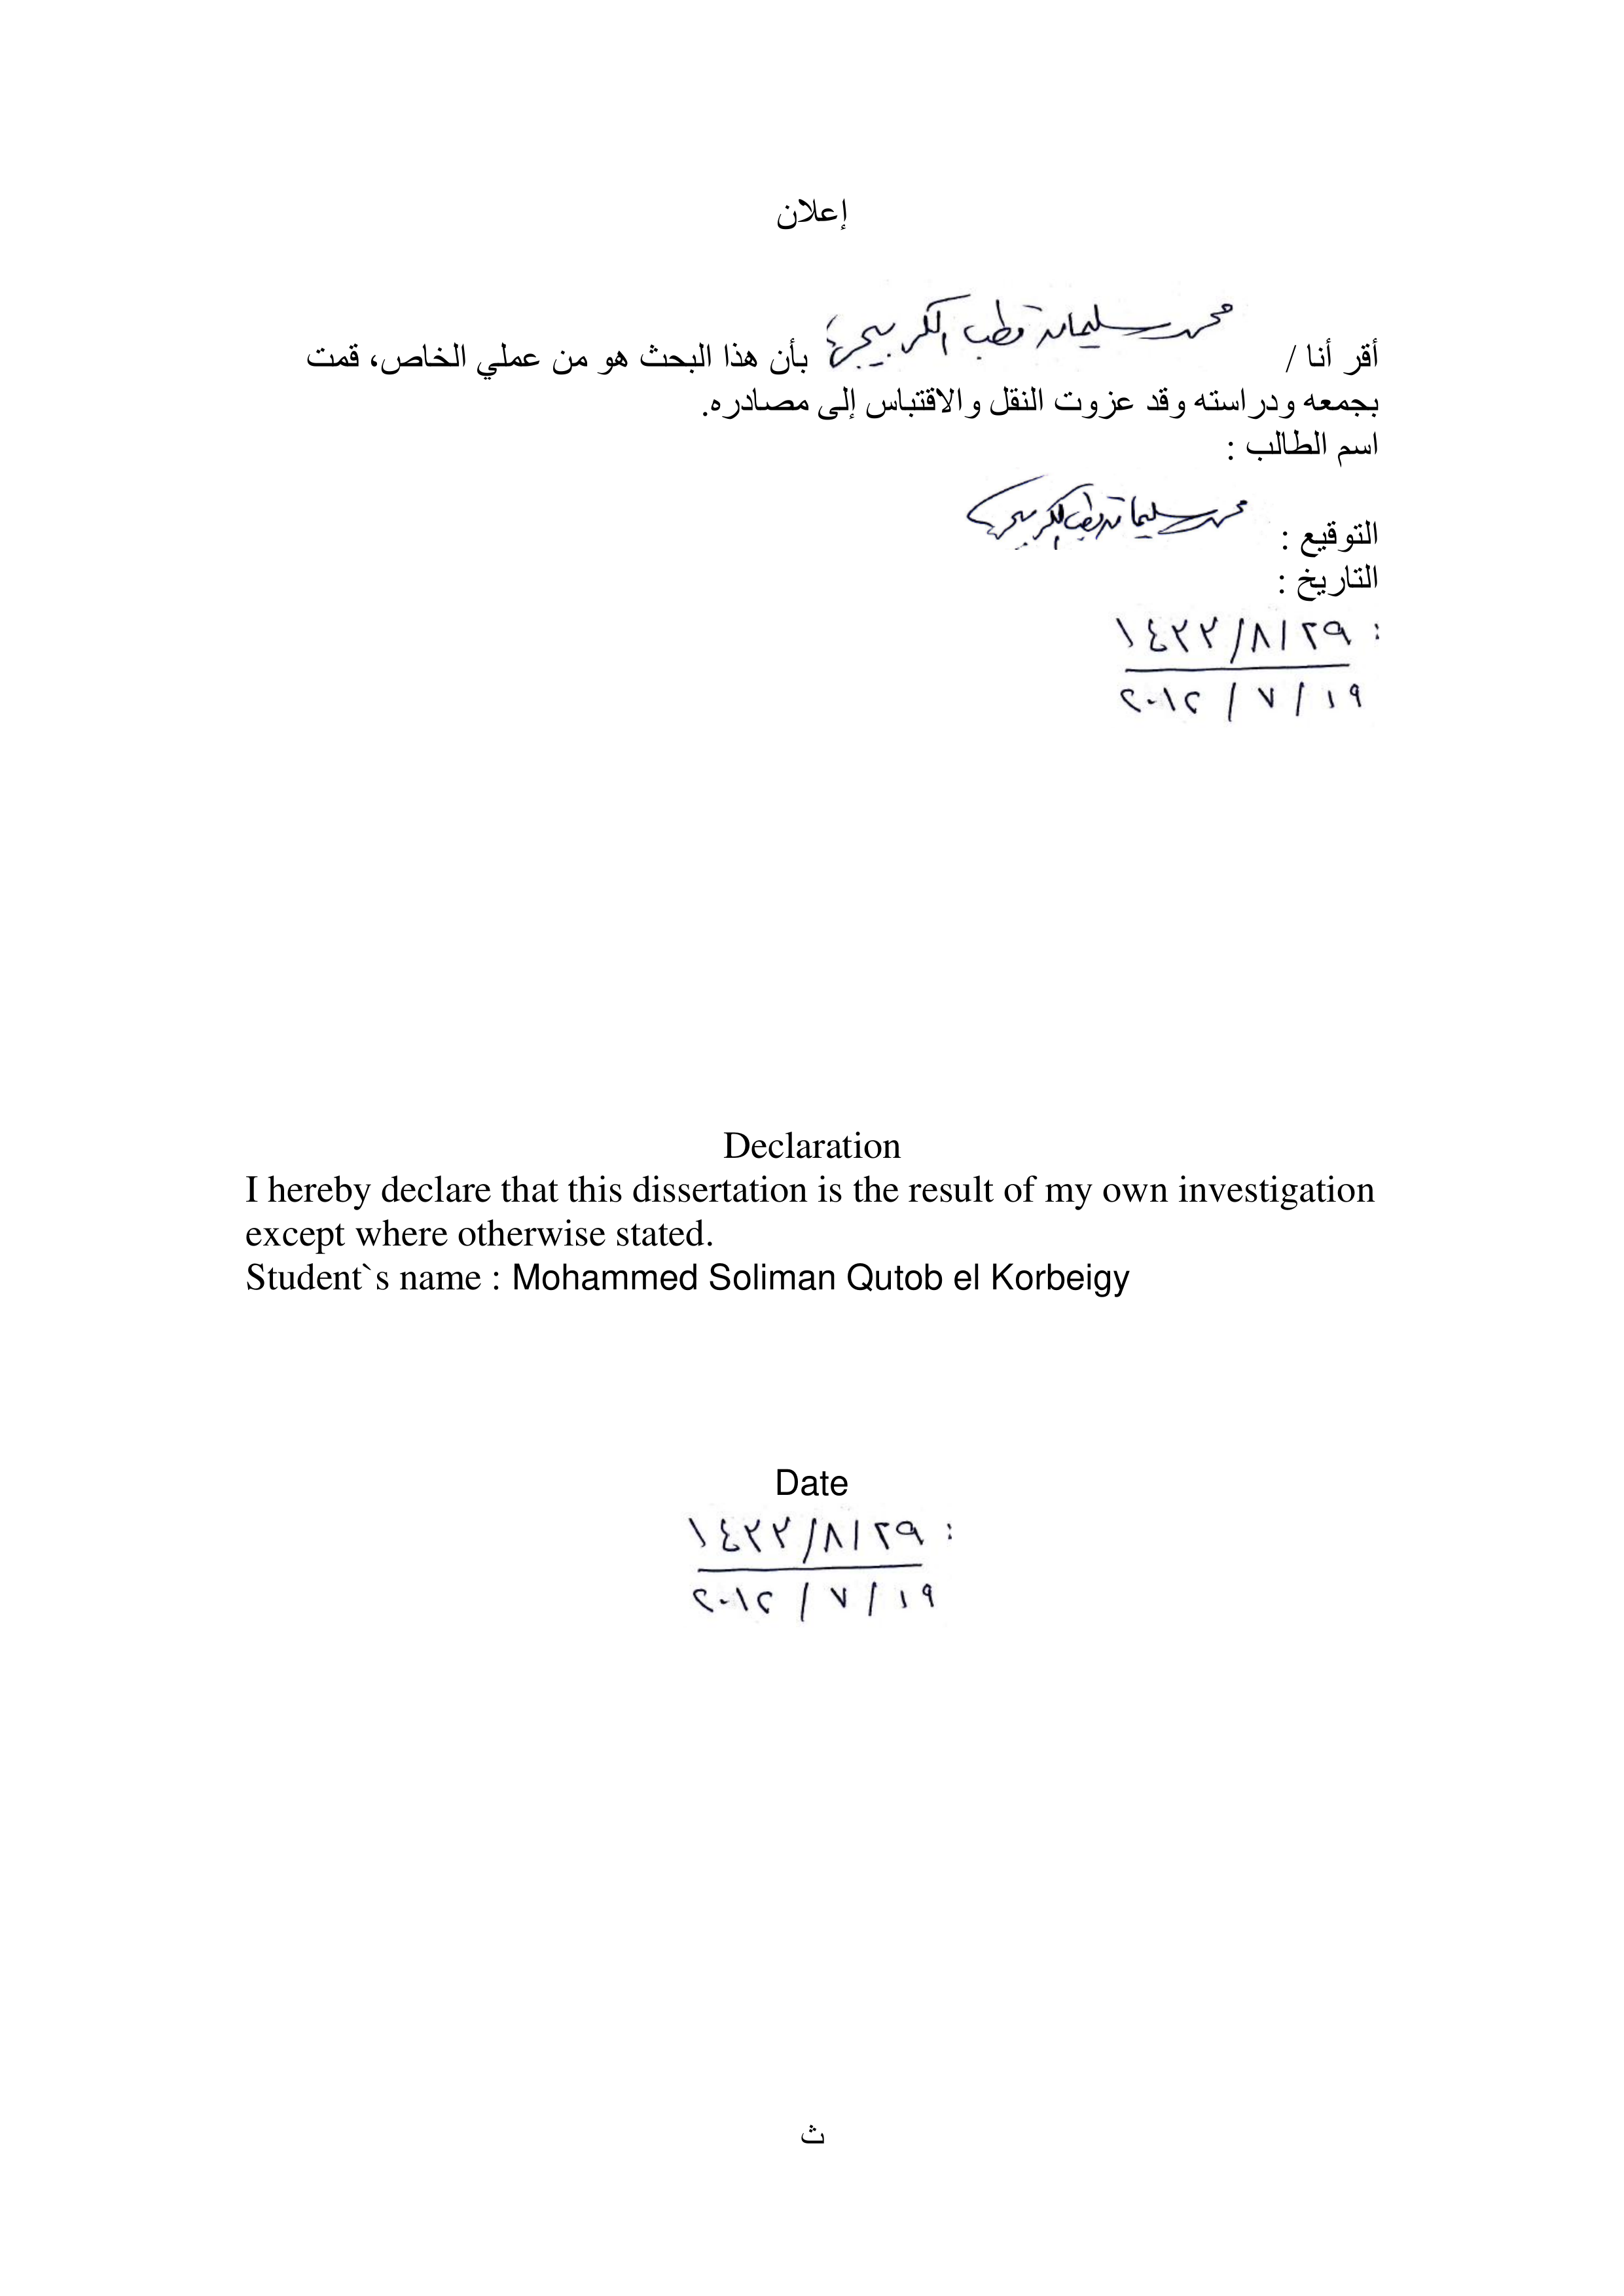 إعلان
أقر أنا / محمد سليمان قطب الكربيجي بأن هذا البحث هو من عملي الخاص، قمت
بجمعه ودراسته وقد عزوت النقل والاقتباس إلى مصادره.
اسم الطالب :
التوقيع : محمد سليمان قطب الكربيجي
التاريخ :
: ٢٩/٨/١٤٣٣
١٩/٧/٢٠١٢
Declaration
I hereby declare that this dissertation is the result of my own investigation
except where otherwise stated.
Student`s name : Mohammed Soliman Qutob el Korbeigy
Date
: ٢٩/٨/١٤٣٣
١٩/٧/٢٠١٢
ث